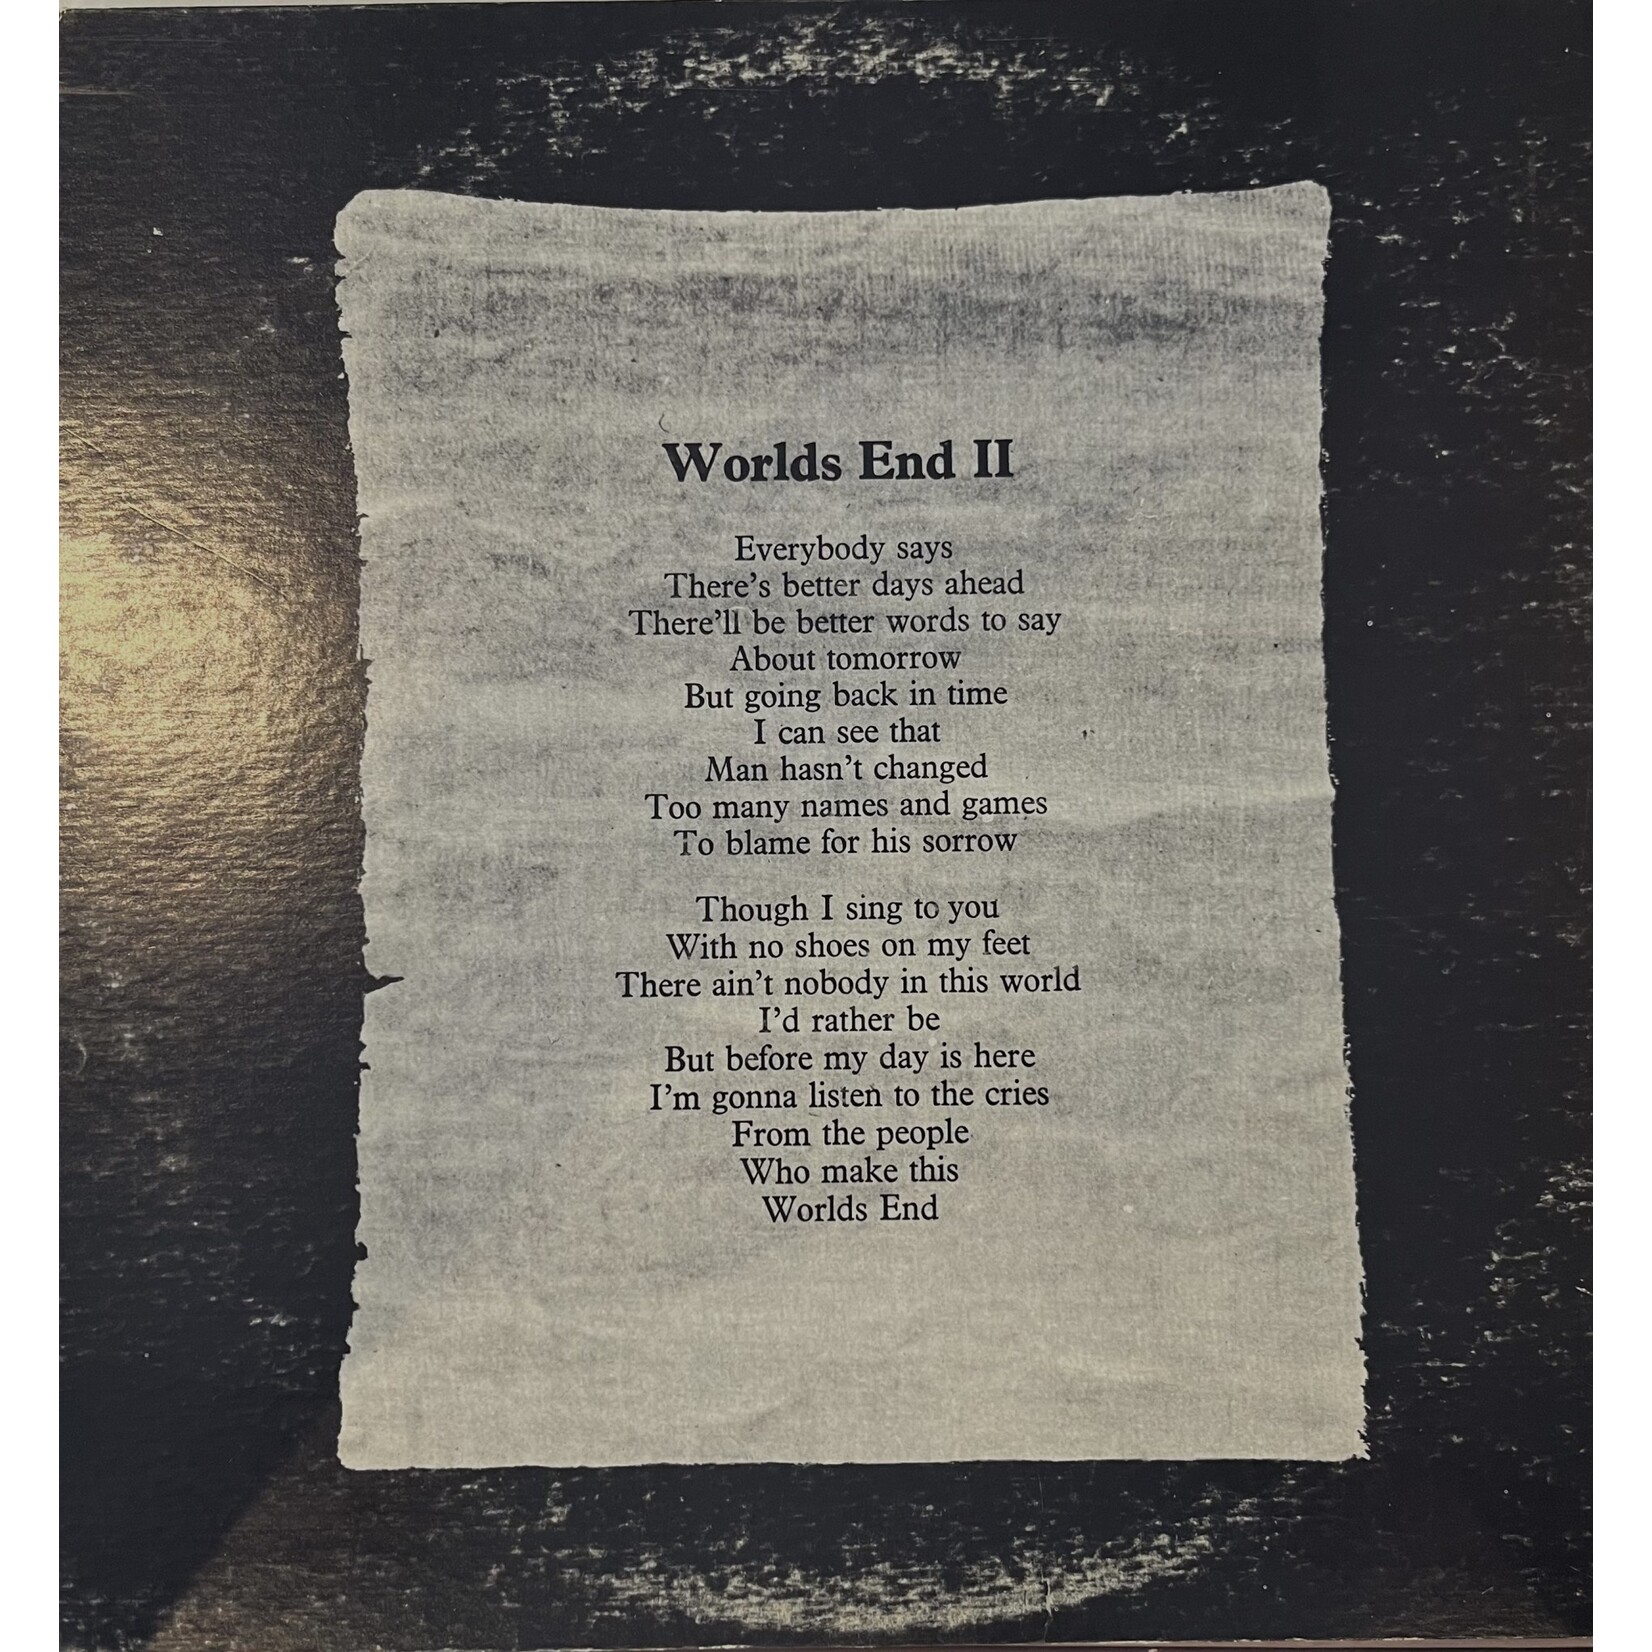 Worlds End II
Everybody says
There's better days ahead
There'll be better words to say
About tomorrow
But going back in time
I can see that
Man hasn't changed
Too many names and games
To blame for his sorrow
Though I sing to you
With no shoes on my feet
There ain't nobody in this world
I'd rather be
But before my day is here
I'm gonna listen to the cries
From the people
Who make this
Worlds End